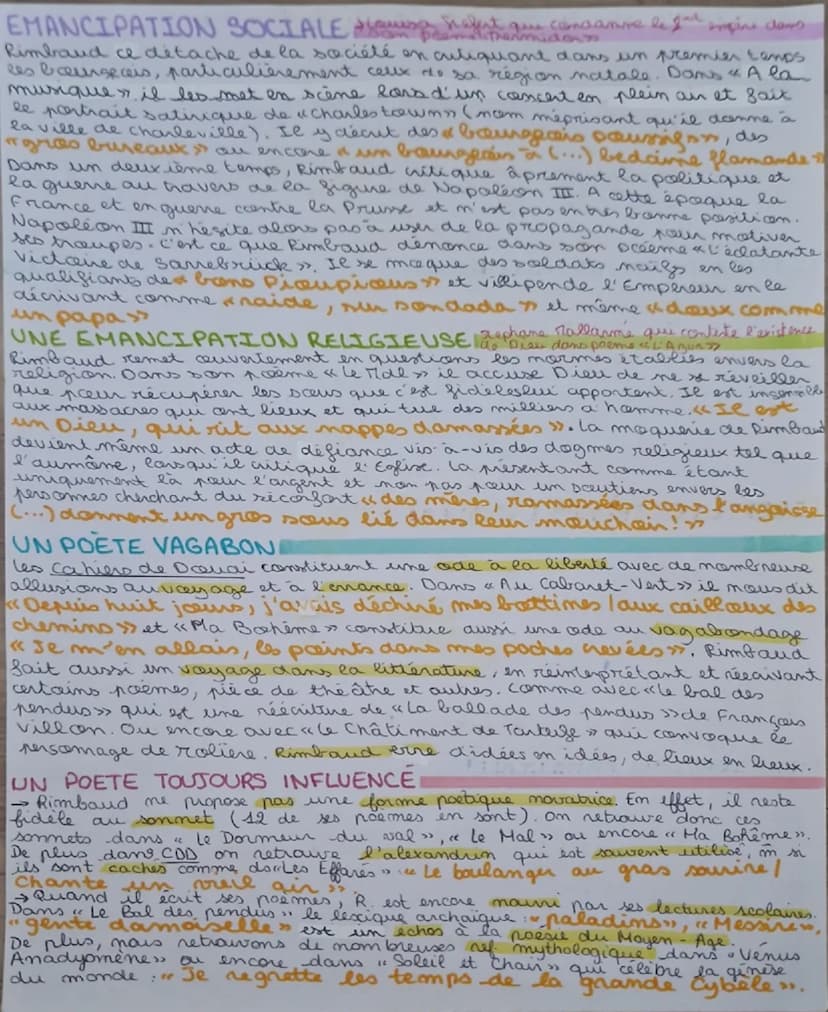 EMANCIPATION SOCIALE Louisa Siefert que condamne le 2nd empire dans
son poème "Thermidor"
Rimbaud ce détache de la société en critiquant dans un premier temps
les bourgeois, particulièrement ceux de sa région natale. Dans « A la
musique » il les met en scène lors d'un concert en plein air et fait
le portrait satirique de « Charlestown » (nom méprisant qu'il donne à
la ville de Charleville). Il y décrit des « bourgeois poussifs », des
« gros bureaux » ou encore « un bourgeois à (...) bedaine flamande »
Dans un deuxième temps, Rimbaud critique âprement la politique et
la guerre au travers de la figure de Napoléon III. A cette époque la
France et en guerre contre la Prusse et n'est pas en très bonne position.
Napoléon III n'hésite alors pas à user de la propagande pour motiver
ses troupes. C'est ce que Rimbaud dénonce dans son poème « L'éclatante
victoire de Sarrebrück ». Il se moque des soldats naïfs en les
qualifiants de « bons Pioupious » et villipende l'Empereur en le
décrivant comme « raide, sur son dada » et même « doux comme
un papa »
UNE EMANCIPATION RELIGIEUSE Stéphane Mallarmé que conteste l'existence
de Dieu dans poème « L'Azur »
Rimbaud remet ouvertement en questions les normes établies envers la
religion. Dans son poème « Le Mal » il accuse Dieu de ne se réveiller
que pour récupérer les sous que c'est fidèles lui apportent. Il est insensible
aux massacres qui ont lieux et qui tue des milliers d'homme. « Il est
un Dieu, qui rit aux nappes damassées ». La moquerie de Rimbaud
devient même un acte de défiance vis-à-vis des dogmes religieux tel que
l'aumône, lorsqu'il critique l'Eglise. La présentant comme étant
uniquement là pour l'argent et non pas pour un soutiens envers les
personnes cherchant du réconfort « des mères, ramassées dans l'angoisse
(...) donnent un gros sous lié dans leur mouchoir ! »
UN POÈTE VAGABON
Les Cahiers de Douai constituent une ode à la liberté avec de nombreuse
allusions au voyage et à l'errance. Dans « Au Cabaret-Vert » il nous dit
« Depuis huit jours, j'avais déchiré mes bottines / aux cailloux des
chemins » et « Ma Bohème » constitue aussi une ode au vagabondage
« Je m'en allais, les points dans mes poches crevées ». Rimbaud
fait aussi un voyage dans la littérature, en réinterprétant et réecrivant
certains poèmes, pièce de théâtre et autres. Comme avec « le bal des
pendus » qui est une réécriture de « La ballade des pendus » de François
Villon. Ou encore avec « Le Châtiment de Tartuffe » qui convoque le
personnage de Molière. Rimbaud erre d'idées en idées, de lieux en lieux.
UN POETE TOUJOURS INFLUENCÉ
→ Rimbaud ne propose pas une forme poétique novatrice. En effet, il reste
fidèle au sonnet (12 de ses poèmes en sont). On retrouve donc ces
sonnets dans « Le Dormeur du val », « Le Mal » ou encore « Ma Bohême ».
De plus dans CDD on retrouve l'alexandrin qui est souvent utilisé, m si
ils sont cachés comme ds « Les Effarés » « Le boulanger au gras sourire /
Chante un vieil air ».
→ Quand il écrit ses poèmes, R. est encore nourri par ses lectures scolaires.
Dans « Le Bal des pendus » le lexique archaïque : « paladins », « Messire »,
« gente damoiselle » est un échos à la poésie du Moyen-Age.
De plus, nous retrouvons de nombreuses ref. mythologique dans « Vénus
Anadyomène » ou encore dans « Soleil et Chair » qui célèbre la génèse
du monde : « Je regrette les temps de la grande Cybèle ».